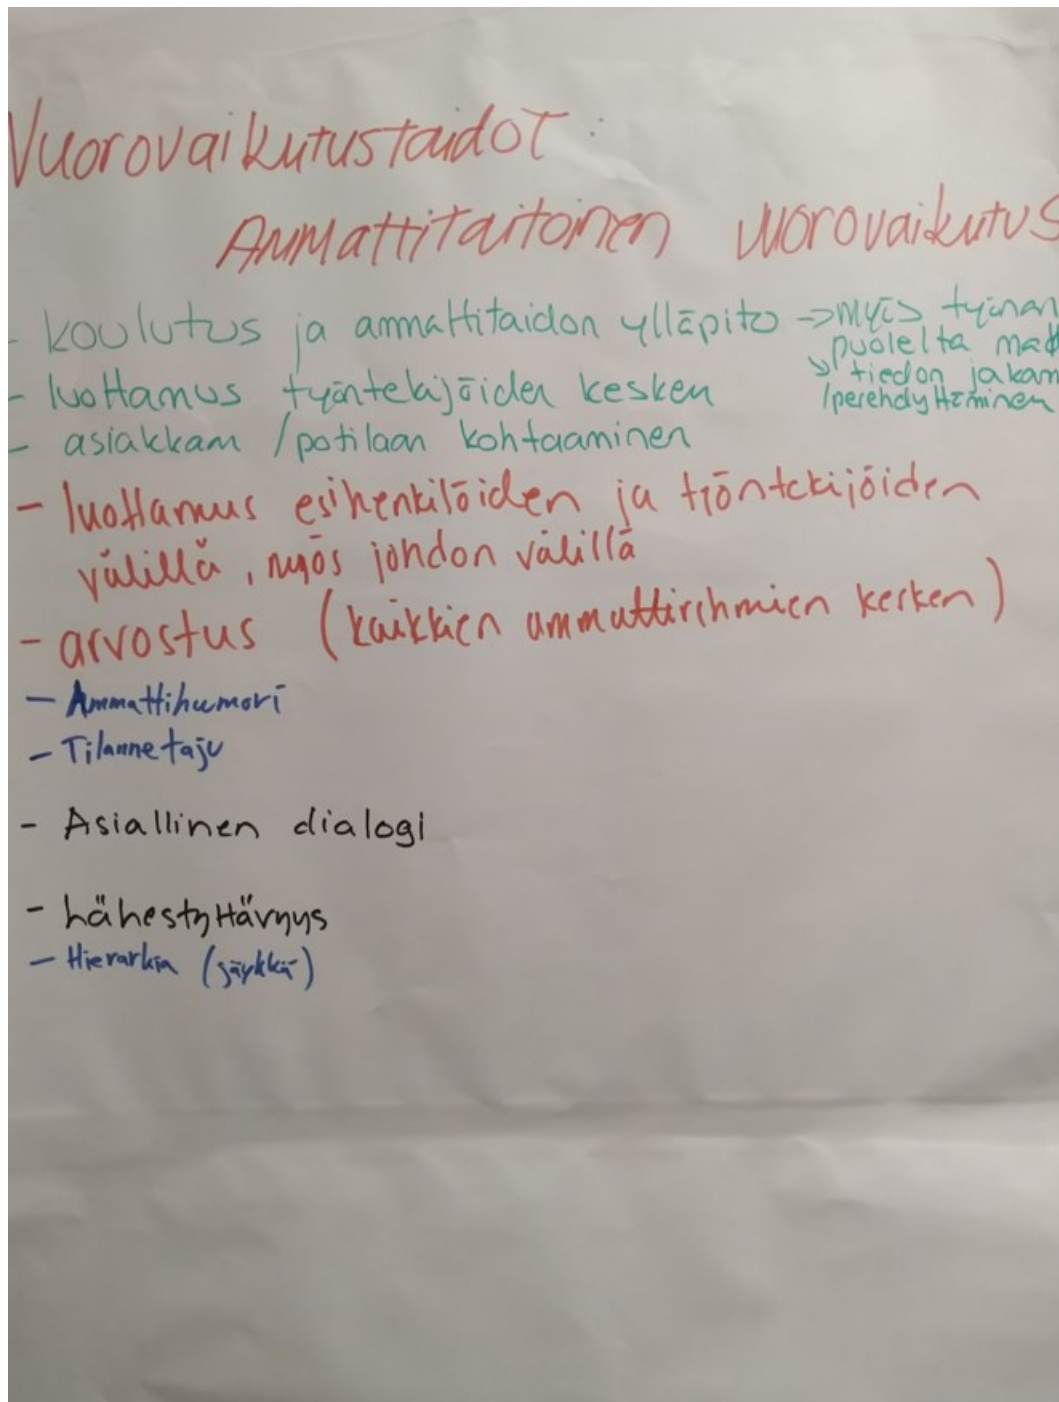 Vuorovaikutustaidot:
Ammattitaitoinen vuorovaikutus
- koulutus ja ammattitaidon ylläpito -> myös työnan
puolelta mad
-> tiedon jakam
/perehdyttäminen
- luottamus työntekijöiden kesken
- asiakkaan /potilaan kohtaaminen
- luottamus esihenkilöiden ja työntekijöiden
välillä, myös johdon välillä
- arvostus (kaikkien ammattiryhmien kesken)
- Ammattihumori
- Tilannetaju
- Asiallinen dialogi
- hähestyttävyys
- Hierarkia (jäykkä)